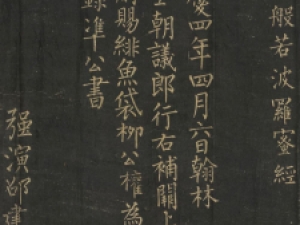 般若波羅蜜經
慶四年四月六日翰林
上朝議郎行右補闕上
賜緋魚袋柳公權為
錄準公書
强演邵建